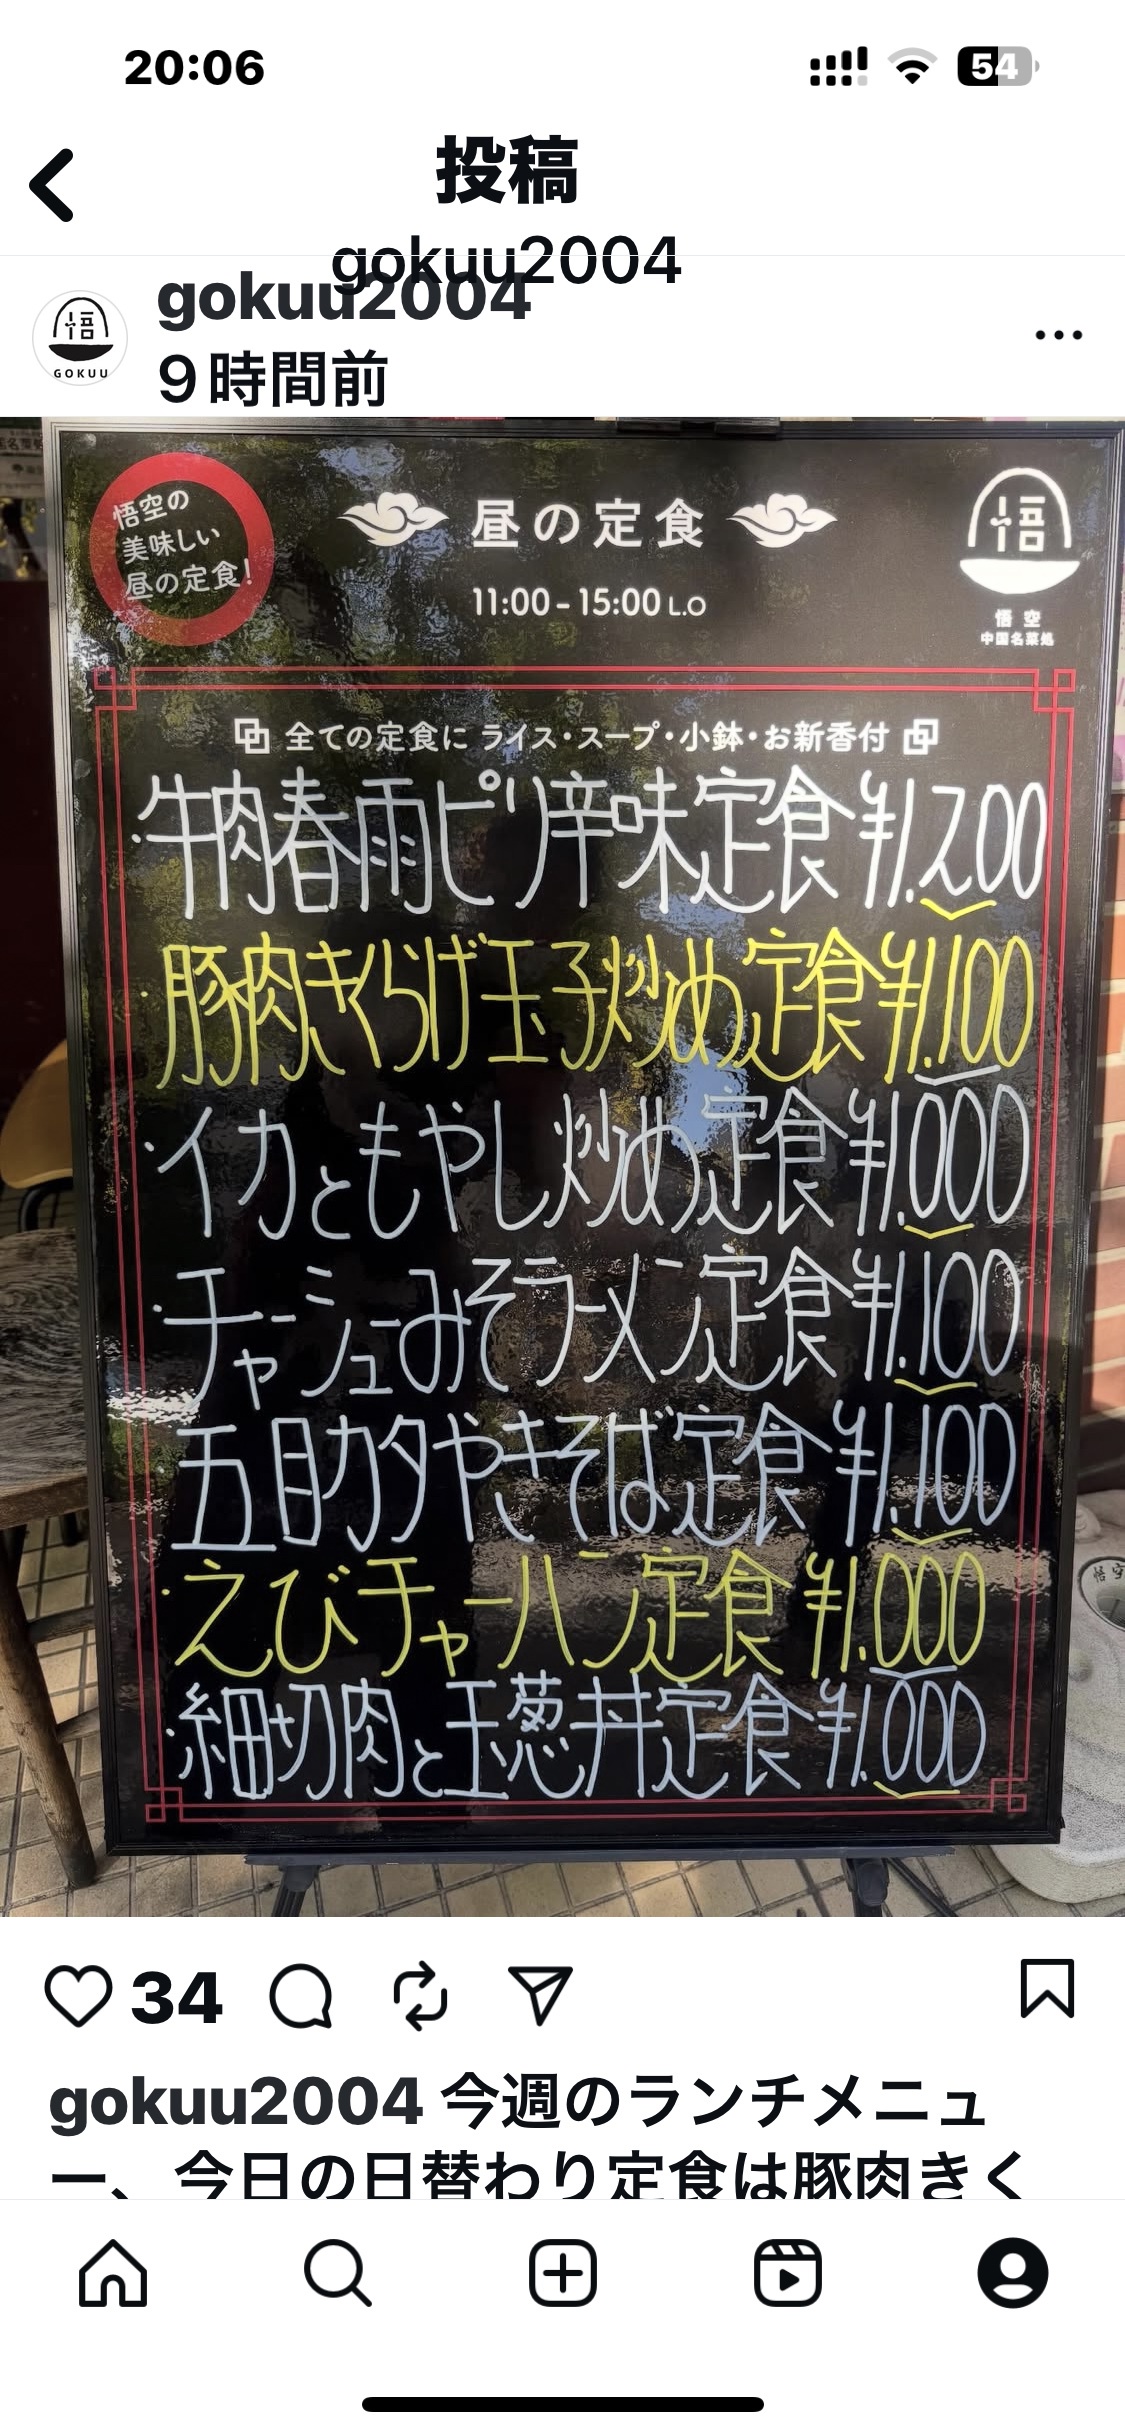 20:06
54
投稿
gokuu2004
gokuu2004
9時間前
悟
GOKUU
悟空の
美味しい
昼の定食!
昼の定食
11:00-15:00 L.O
悟
悟空
中国名菜処
全ての定食に ライス・スープ・小鉢・お新香付
・牛肉春雨ピリ辛味定食¥1.200
・豚肉きくらげ玉子炒め定食¥1.100
・イカともやし炒め定食¥1.000
・チャーシューみそラーメン定食¥1.100
・五目カタやきそば定食¥1.100
・えびチャーハン定食¥1.000
・細切肉と玉葱丼定食¥1.000
悟空
34
gokuu2004 今週のランチメニュ
ー、今日の日替わり定食は豚肉きく